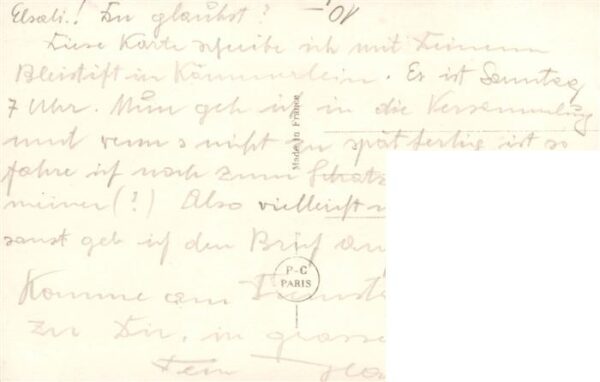 Elsali! Du glaubst?
10.-
Diese Karte schreibe ich mit Deinem
Bleistift in Kämmerlein. Es ist Sonntag
7 Uhr. Nun geh ich in die Versammlung
und wenn's nicht zu spät fertig ist so
fahre ich noch zum Schatz
meiner (?) Also vielleicht
sonst geb ich den Brief
Komme am
zu Dir, in
Dein
Made in France
P-C
PARIS